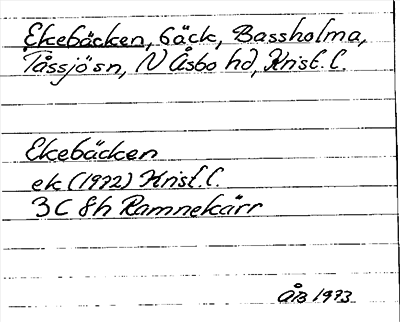 Ekebäcken, bäck, Bassholma,
Tåssjö sn, N Åsbo hd, Krist. l.
Ekebäcken
ek (1972) Krist. l.
3C 8h Ramnekärr
ÅB 1973